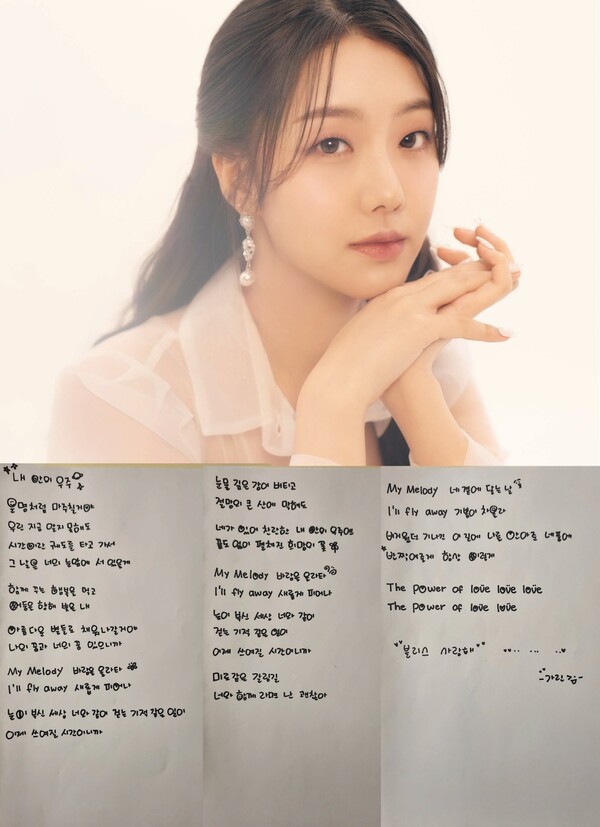 내 안의 우주
운명처럼 마주칠거야
우린 지금 알지 못해도
시간이란 궤도를 타고 가서
그 날은 너의 눈앞에 서 있을게
함께 꾸는 행복을 먹고
어둠을 향해 밝은 내
아름다운 별들로 채워나갈거야
나의 꿈과 너의 꿈 있으니까
My Melody 바람을 올라타
I'll fly away 새롭게 피어나
눈이 부신 세상 너와 같이 걷는 기적 같은 일이
이제 쓰여질 시간이니까
눈물 깊은 강이 버티고
절망의 큰 산에 막혀도
네가 있어 찬란한 내 안의 우주엔
끝도 없이 펼쳐진 희망이 꽃
My Melody 바람을 올라타
I'll fly away 새롭게 피어나
눈이 부신 세상 너와 같이
걷는 기적 같은 일이
이제 쓰여질 시간이니까
미로같은 갈림길
너와 함께 라면 난 괜찮아
My Melody 네 곁에 닿는 날
I'll fly away 기쁨이 차올라
버거웠던 기나긴 이 길에 나를 안아줄 네 품에
반짝이르게 항상
The power of love love love
The power of love love love
블리스 사랑해
-가린 김-